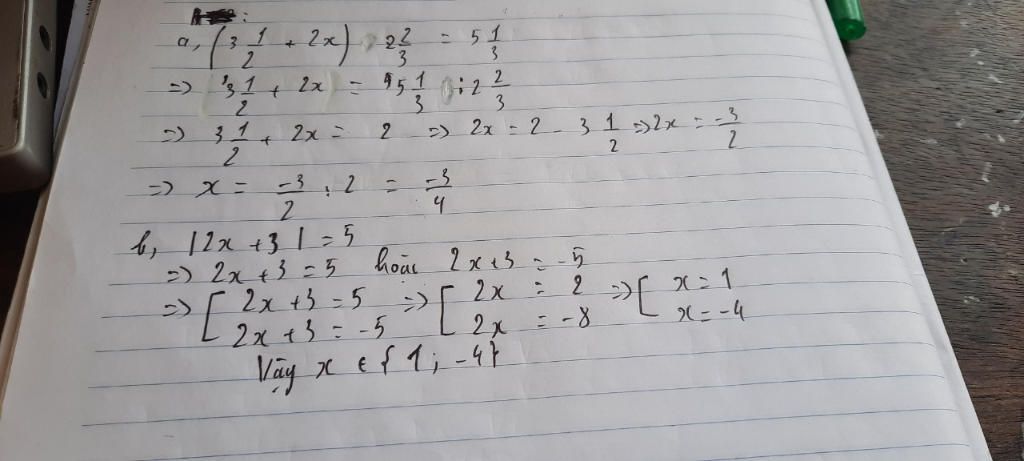 a, (3 1/2 + 2x) . 2 2/3 = 5 1/3
=> 3 1/2 + 2x = 5 1/3 : 2 2/3
=> 3 1/2 + 2x = 2 => 2x = 2 - 3 1/2 => 2x = -3/2
=> x = -3/2 : 2 = -3/4
b, |2x + 3| = 5
=> 2x + 3 = 5 hoặc 2x + 3 = -5
=> [ 2x + 3 = 5 => [ 2x = 2 => [ x = 1
2x + 3 = -5 2x = -8 x = -4
Vậy x ∈ { 1 ; -4}